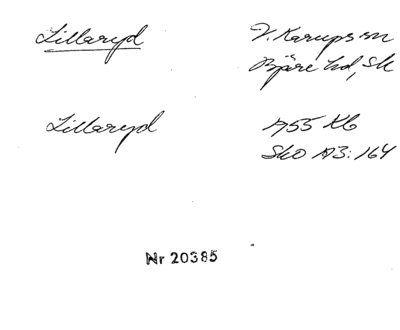 Lillaryd
V. Karups sn
Bjäre hd, Sk
Lillaryd
1755 Kb
Sko A3:164
Nr 20385